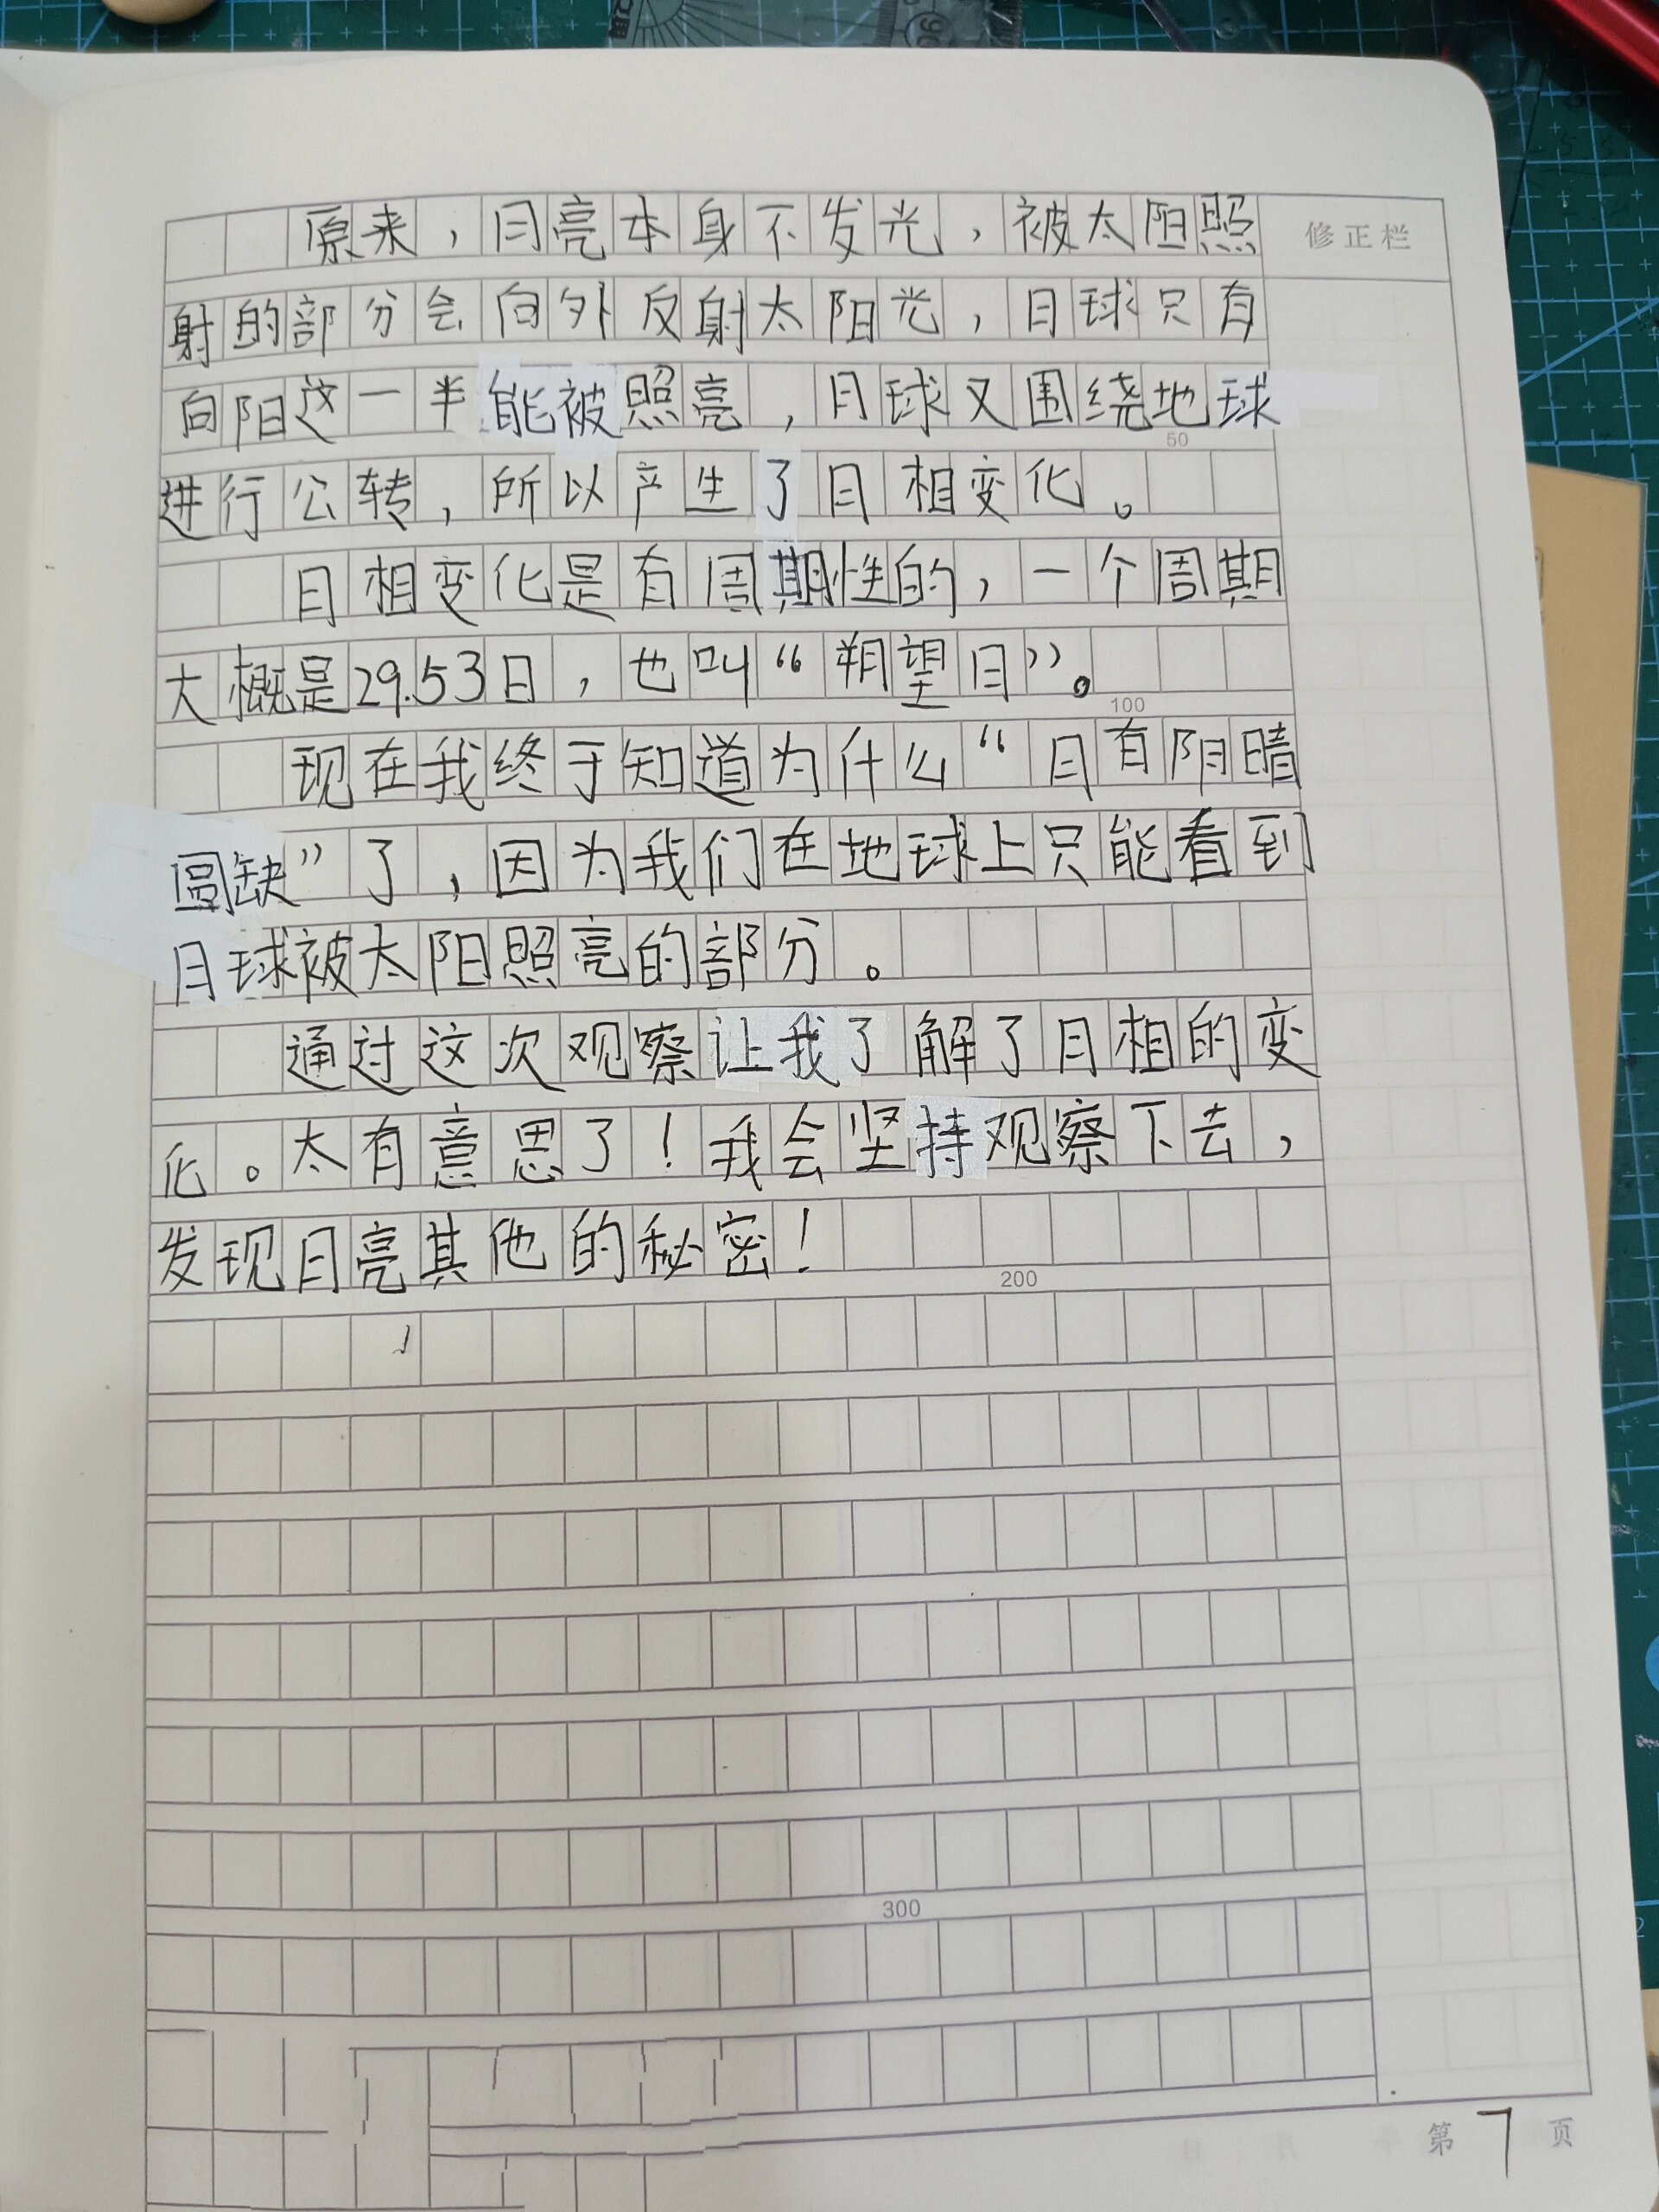 原来，月亮本身不发光，被太阳照
修正栏
射的部分会向外反射太阳光，月球只有
向阳这一半能被照亮，月球又围绕地球
50
进行公转，所以产生了月相变化。
月相变化是有周期性的，一个周期
大概是29.53日，也叫“朔望月”。
100
现在我终于知道为什么“月有阴晴
圆缺”了，因为我们在地球上只能看到
月球被太阳照亮的部分。
通过这次观察让我了解了月相的变
化。太有意思了！我会坚持观察下去，
发现月亮其他的秘密！
200
300
第7页